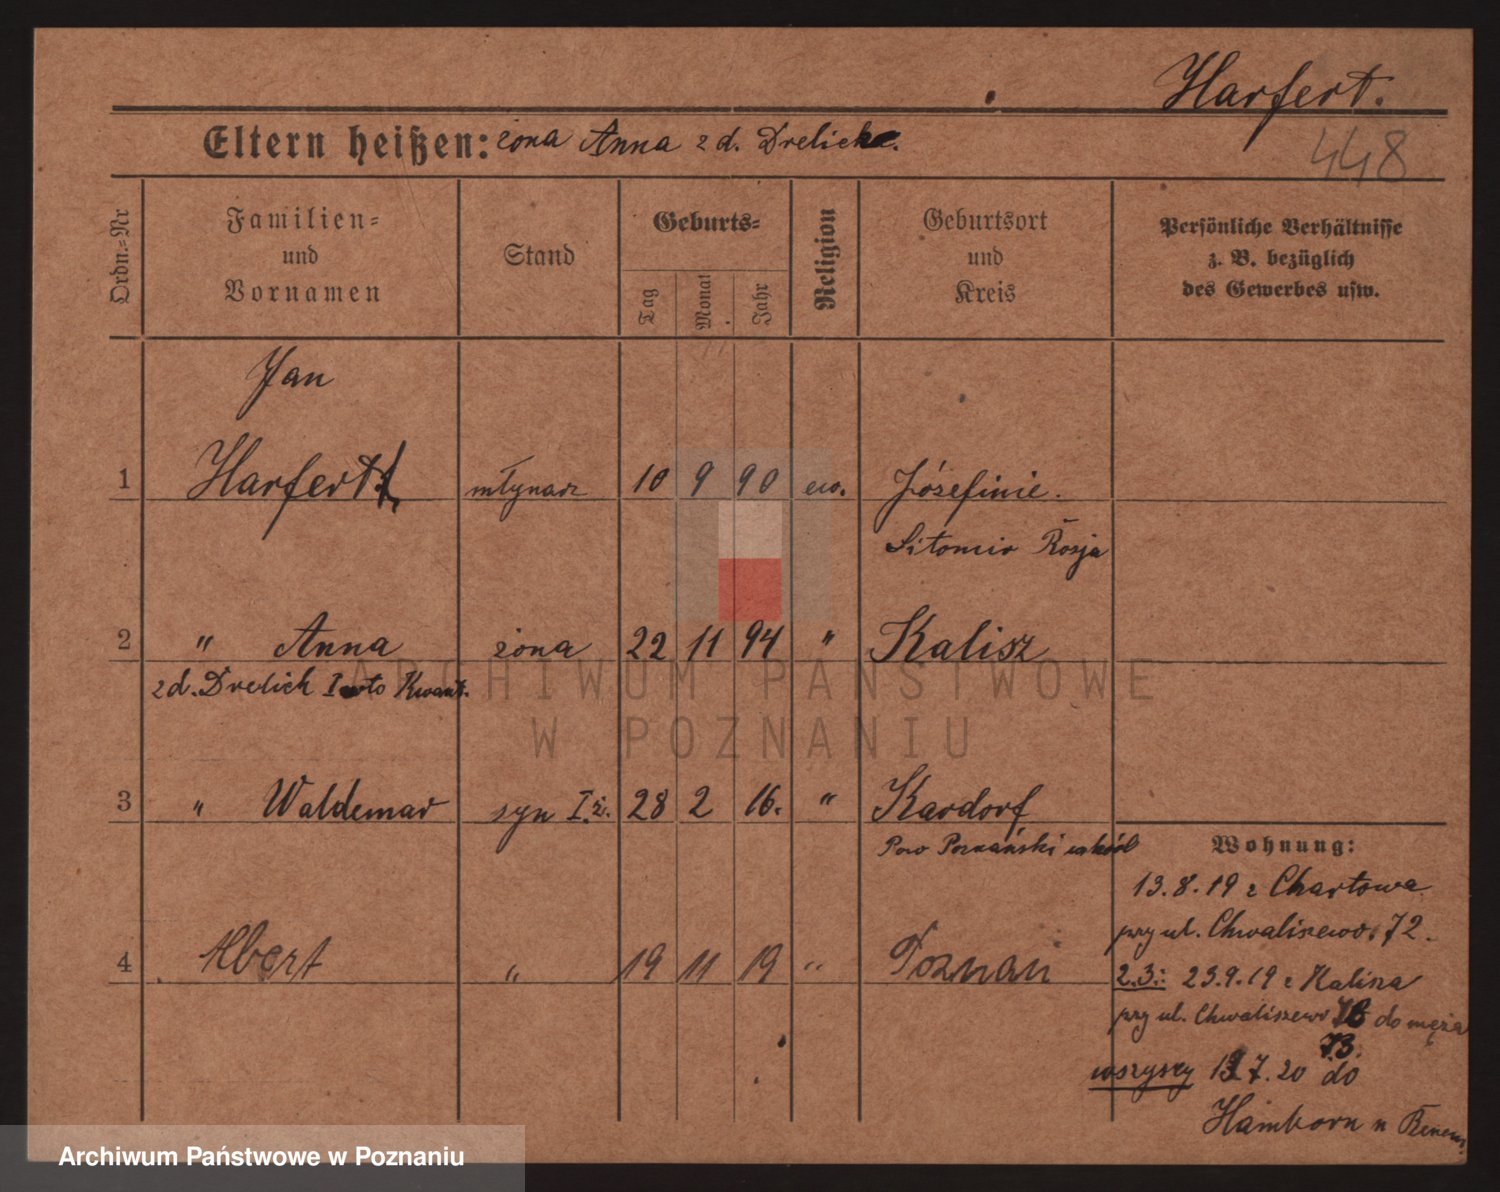 Harfert.
448
Eltern heißen: żona Anna z d. Drelich.
Ordn.=Nr
Familien=
und
Vornamen
Stand
Geburts=
Tag
Monat
Jahr
Religion
Geburtsort
und
Kreis
Persönliche Verhältnisse
z. B. bezüglich
des Gewerbes usw.
Jan
1 Harfert młynarz 10 9 90 ew. Józefinie.
Sitomir Rosja
2 " Anna żona 22 11 94 " Kalisz
z d. Drelich I
3 " Waldemar syn I ż. 28 2 16. " Kardorf
Pow Poznański
Wohnung:
13.8.19 z Chartowa
przy ul. Chwaliszewo. 72.
4 Albert " 19 11 19 " Poznań
2.3.: 23.9.19 z Kalisza
przy ul. Chwaliszewo do męża
73.
wszyscy 7.20 do
Hamborn n
ARCHIWUM PAŃSTWOWE
W POZNANIU
Archiwum Państwowe w Poznaniu